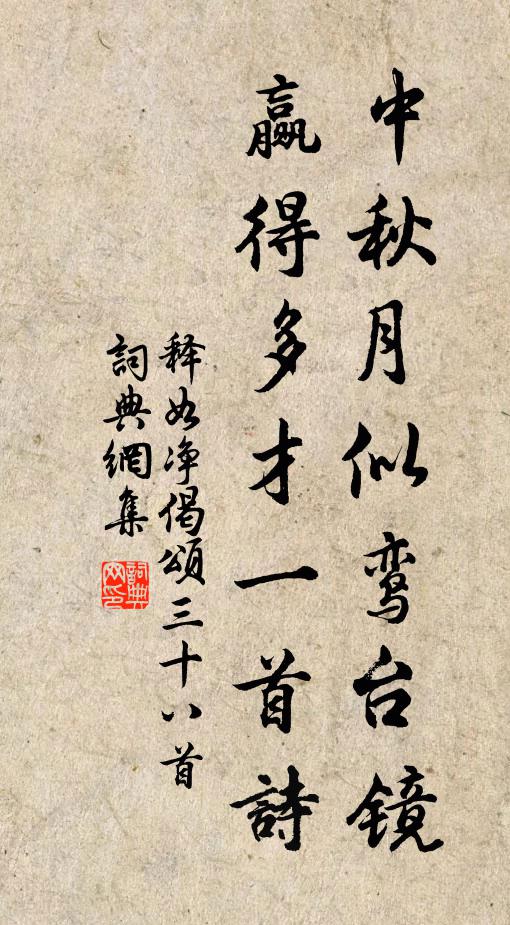 中秋月似鸾台镜
赢得多才一首詩
释如净偈頌三十八首
詞典網集
詞典
网